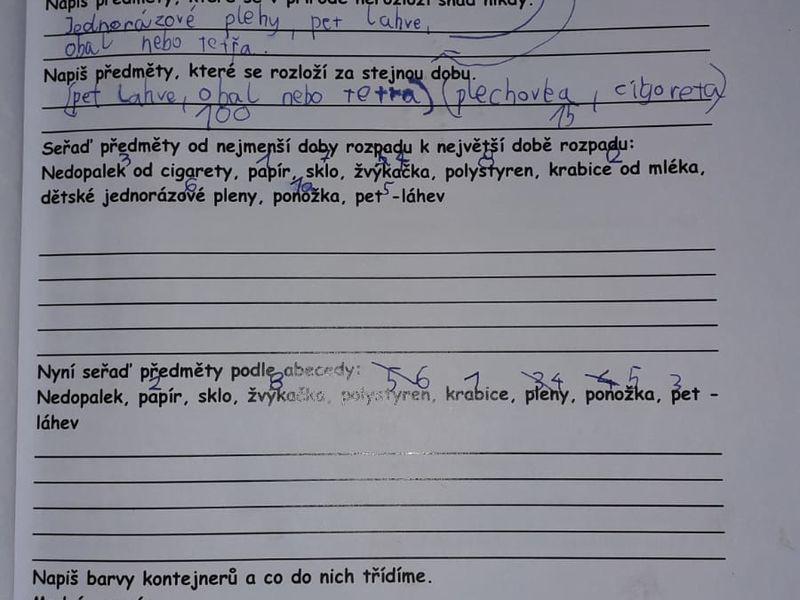 Napiš předměty, které se v přírodě nerozloží snad nikdy.
Jednorázové plehy, pet lahve,
obal nebo tetřa.
Napiš předměty, které se rozloží za stejnou dobu.
(pet lahve, obal nebo tetra) (plechovka, cigoreta)
100 15
Seřaď předměty od nejmenší doby rozpadu k největší době rozpadu:
3 1 7 4 8 2
Nedopalek od cigarety, papír, sklo, žvýkačka, polystyren, krabice od mléka,
6 10 5
dětské jednorázové pleny, ponožka, pet -láhev
Nyní seřaď předměty podle abecedy:
2 8 5 6 1 3 4 4 5 3
Nedopalek, papír, sklo, žvýkačka, polystyren, krabice, pleny, ponožka, pet -
láhev
Napiš barvy kontejnerů a co do nich třídíme.